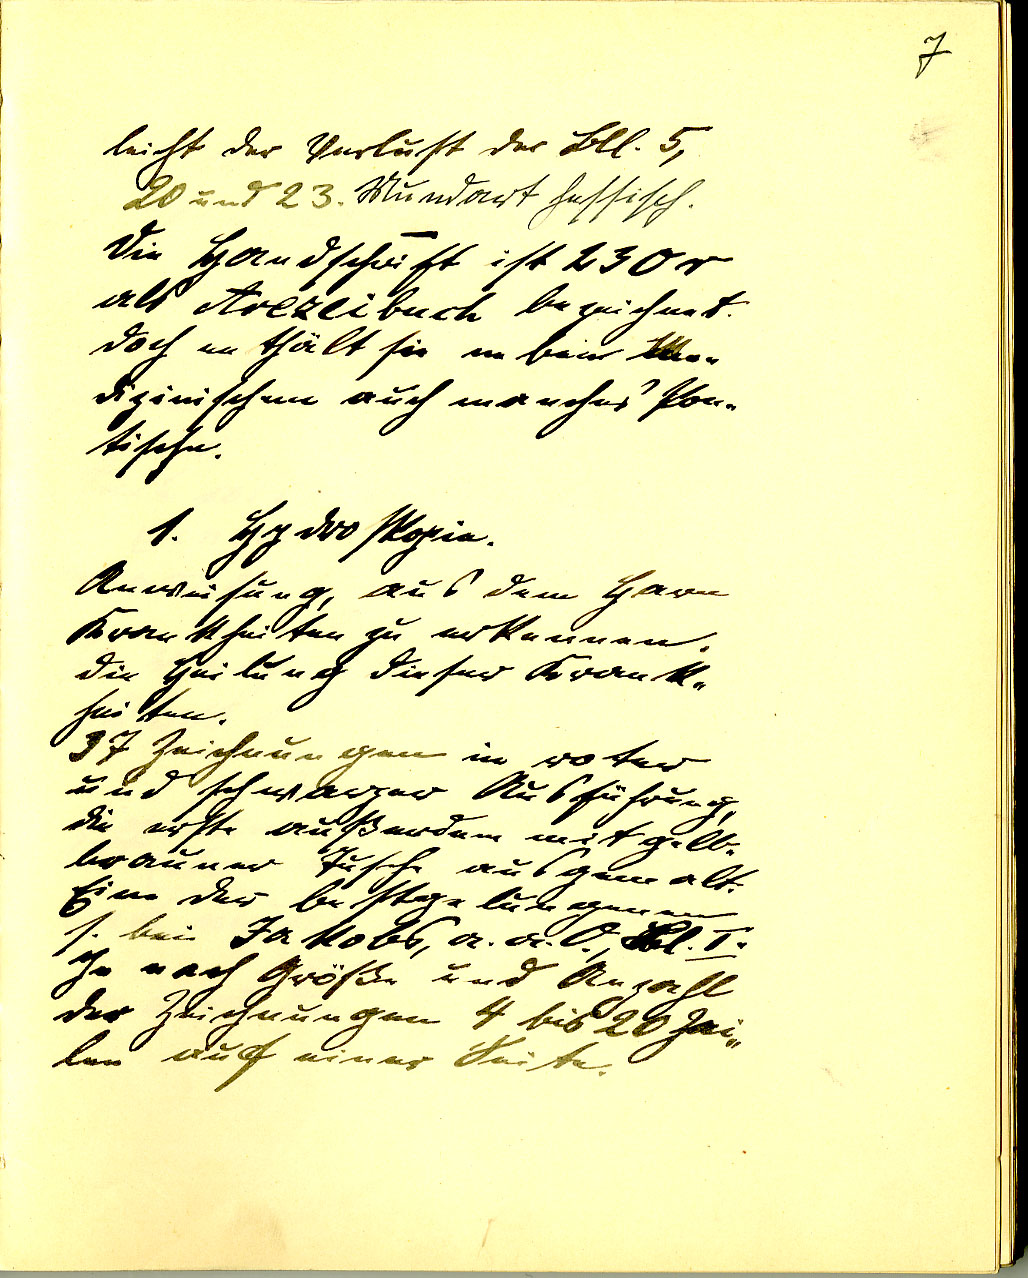 7
leicht der Verlust der Bll. 5,
20 und 23. Mundart hessisch.
Die Handschrift ist 230 r
als Arczeibuch bezeichnet.
doch enthält sie neben Me-
dizinischem auch manches Poe-
tische.
1. Hydroskopie.
Anweisung, aus dem Harn
Krankheiten zu erkennen.
die Heilung dieser Krank-
heiten.
37 Zeichnungen in roter
und schwarzer Ausführung,
die erste außerdem mit gelb-
brauner Tusche ausgemalt.
Eine der bestgelungenen
s. bei Jakobs, a. a. O., Bl. I.
Je nach Größe und Anzahl
der Zeichnungen 4 bis 20 Zei-
len auf einer Seite.